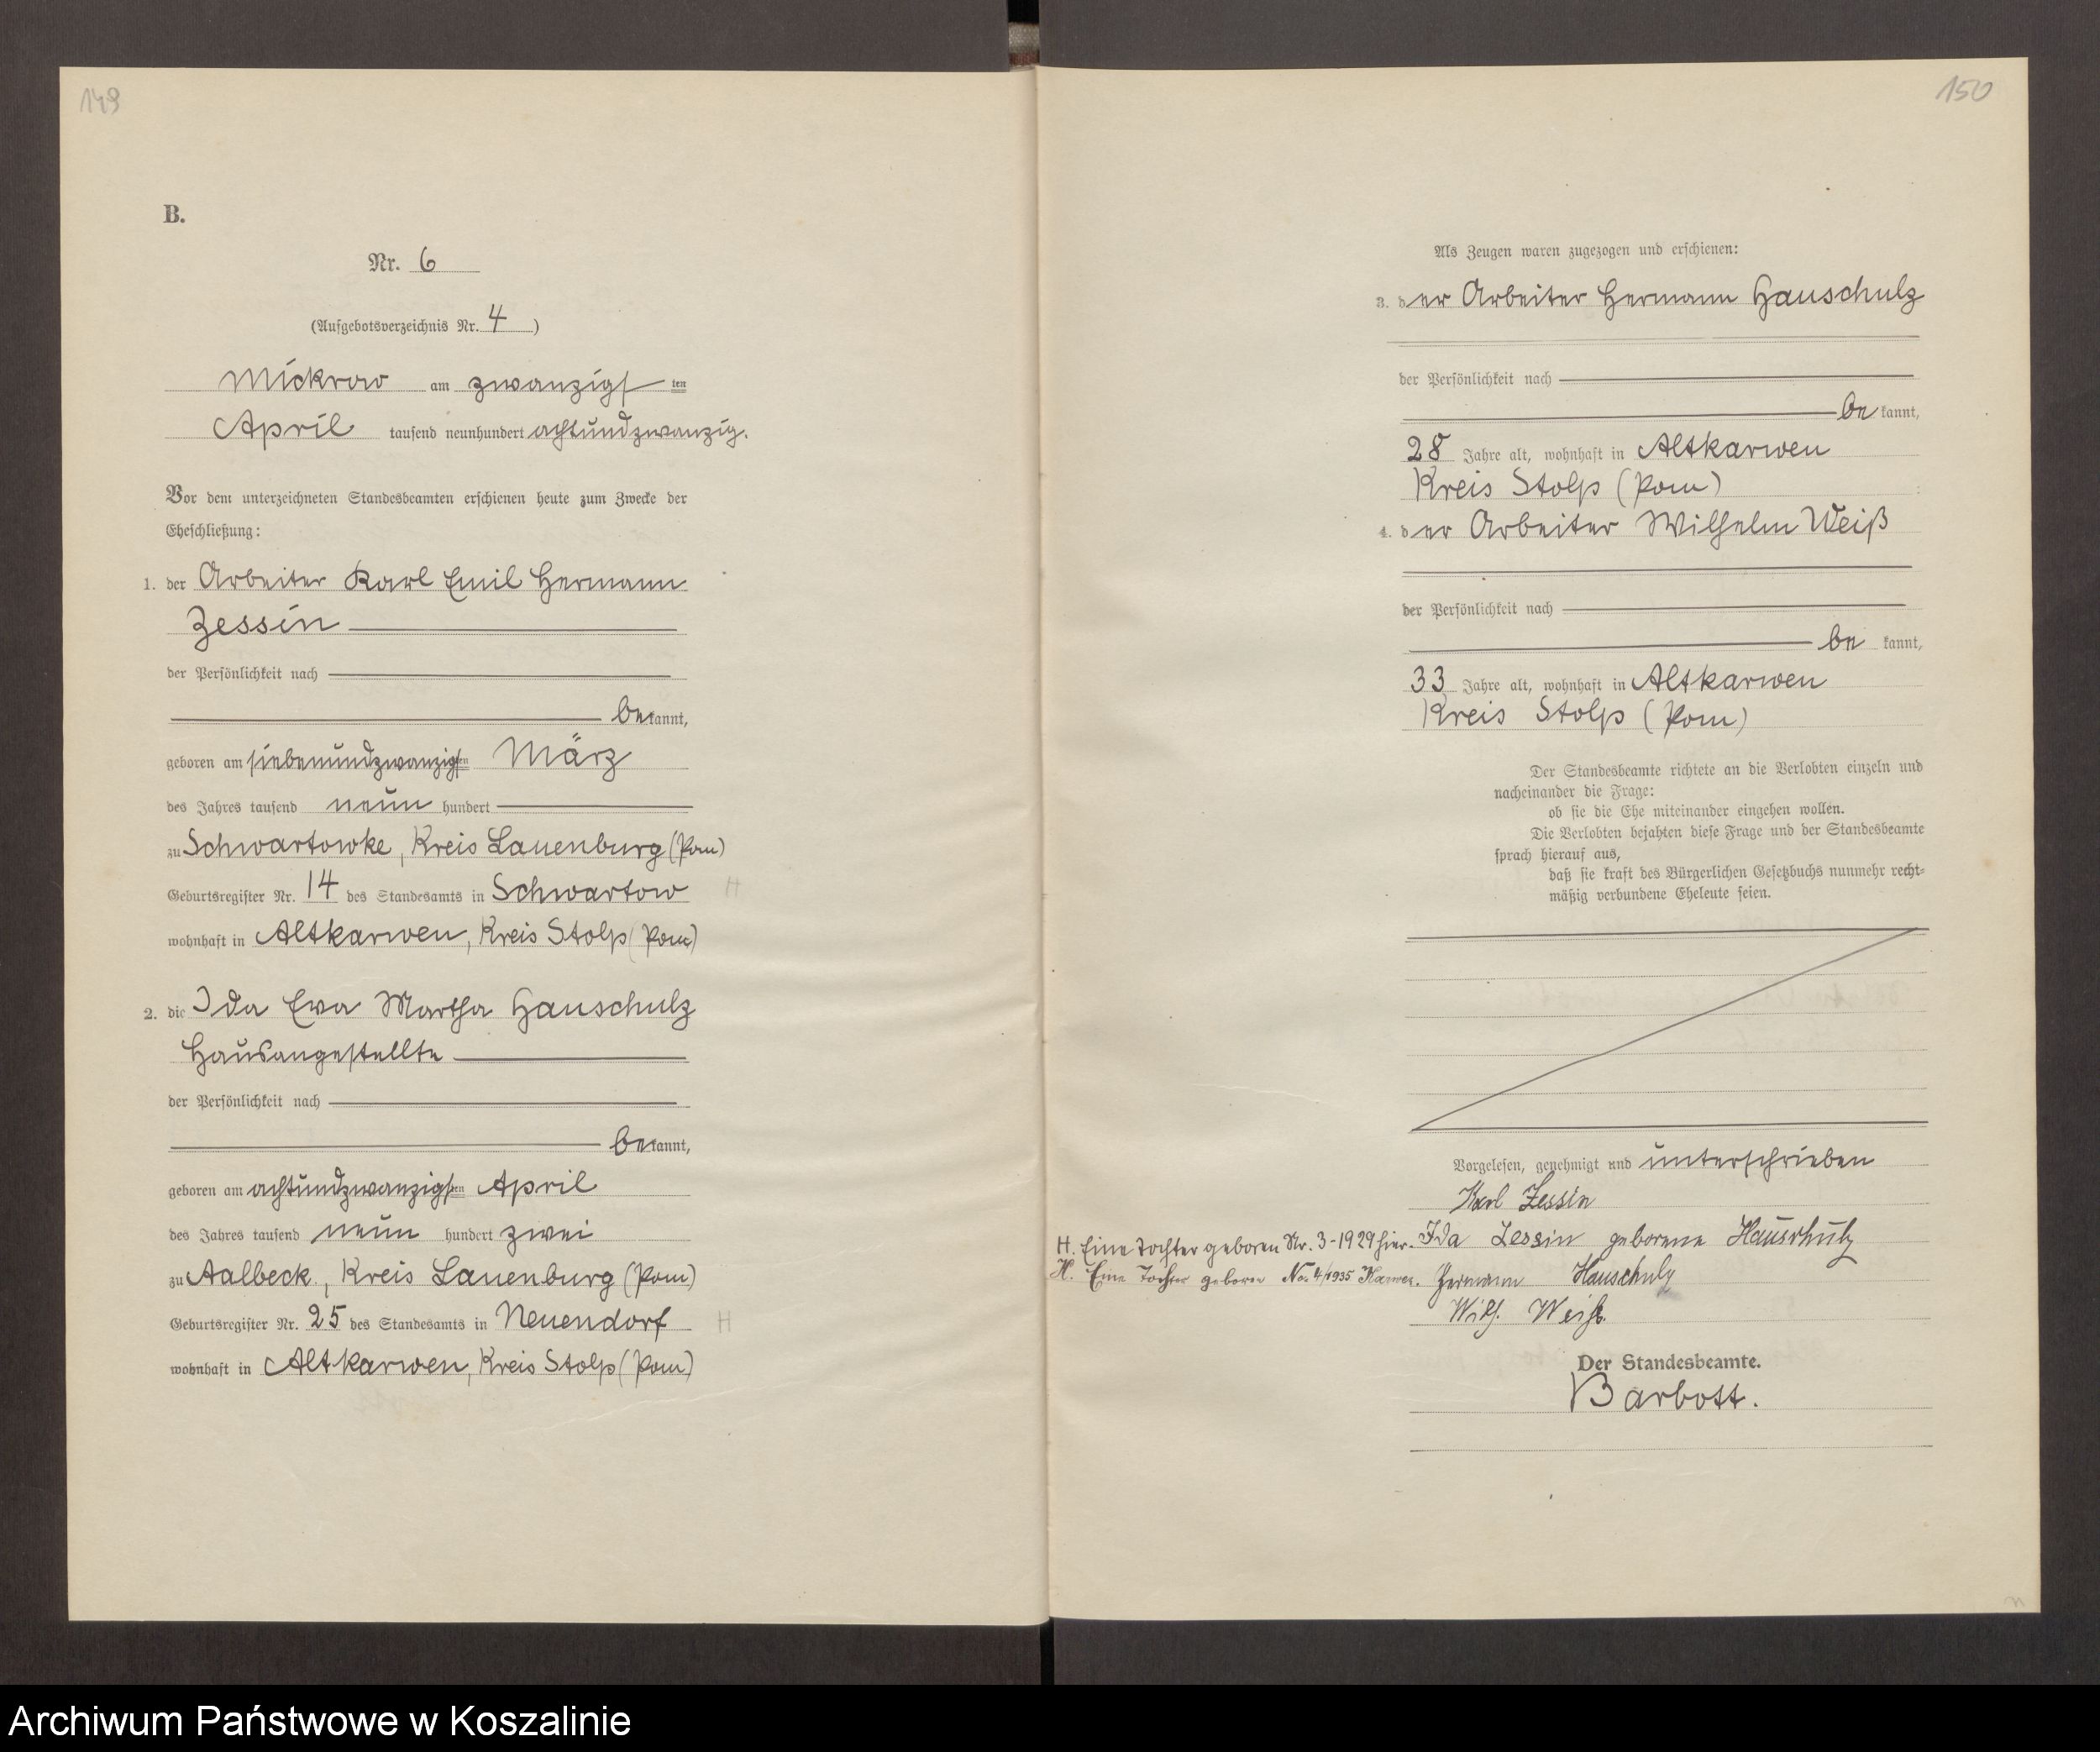 149
B.
Nr. 6
(Aufgebotsverzeichnis Nr. 4)
Mickrow am zwanzigsten
April tausend neunhundert achtundzwanzig.
Vor dem unterzeichneten Standesbeamten erschienen heute zum Zwecke der
Eheschließung:
1. der Arbeiter Karl Emil Hermann
Zessin
der Persönlichkeit nach
bekannt,
geboren am siebenundzwanzigsten März
des Jahres tausend neun hundert
zu Schwartowke, Kreis Lauenburg (Pom)
Geburtsregister Nr. 14 des Standesamts in Schwartow H
wohnhaft in Altkarwen, Kreis Stolp (Pom)
2. die Ida Ewa Martha Hauschulz
Hausangestellte
der Persönlichkeit nach
bekannt,
geboren am achtundzwanzigsten April
des Jahres tausend neun hundert zwei
zu Aalbeck, Kreis Lauenburg (Pom)
Geburtsregister Nr. 25 des Standesamts in Neuendorf H
wohnhaft in Altkarwen, Kreis Stolp (Pom)
150
Als Zeugen waren zugezogen und erschienen:
3. der Arbeiter Hermann Hauschulz
der Persönlichkeit nach
be kannt,
28 Jahre alt, wohnhaft in Altkarwen
Kreis Stolp (Pom)
4. der Arbeiter Wilhelm Weiß
der Persönlichkeit nach
be kannt,
33 Jahre alt, wohnhaft in Altkarwen
Kreis Stolp (Pom)
Der Standesbeamte richtete an die Verlobten einzeln und
nacheinander die Frage:
ob sie die Ehe miteinander eingehen wollen.
Die Verlobten bejahten diese Frage und der Standesbeamte
sprach hierauf aus,
daß sie kraft des Bürgerlichen Gesetzbuchs nunmehr recht-
mäßig verbundene Eheleute seien.
Vorgelesen, genehmigt und unterschrieben
Karl Zessin
H. Eine Tochter geboren Nr. 3-1929 hier. Ida Zessin geborene Hauschulz
H. Eine Tochter geboren No. 4/1935 Karwen. Hermann Hauschulz
Wilh. Weiß.
Der Standesbeamte.
Barbott.
Archiwum Państwowe w Koszalinie